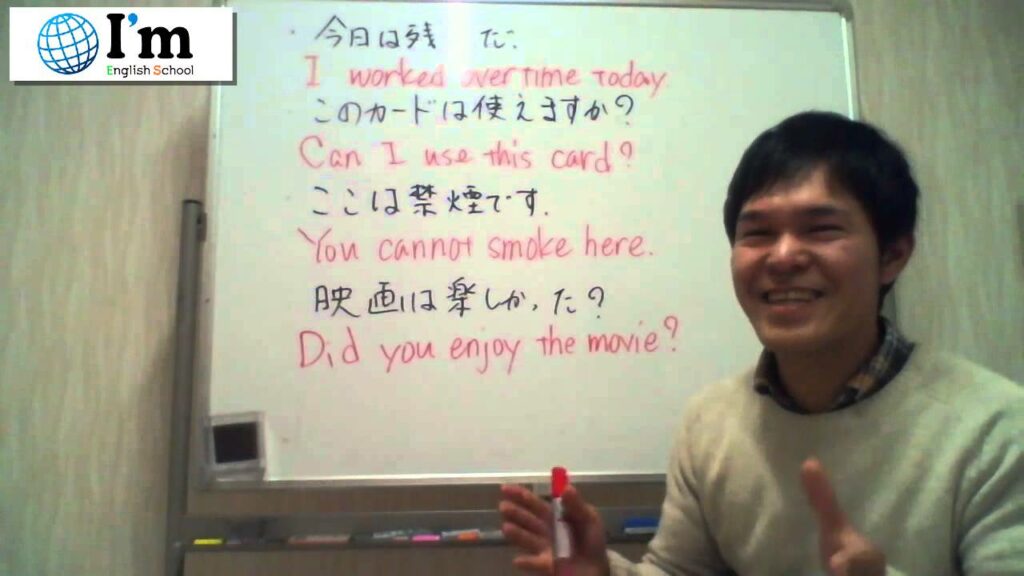 I'm
English School
今日は残 だ.
I worked overtime today
このカードは使えますか?
Can I use this card?
ここは禁煙です.
You cannot smoke here.
映画は楽しかった?
Did you enjoy the movie?